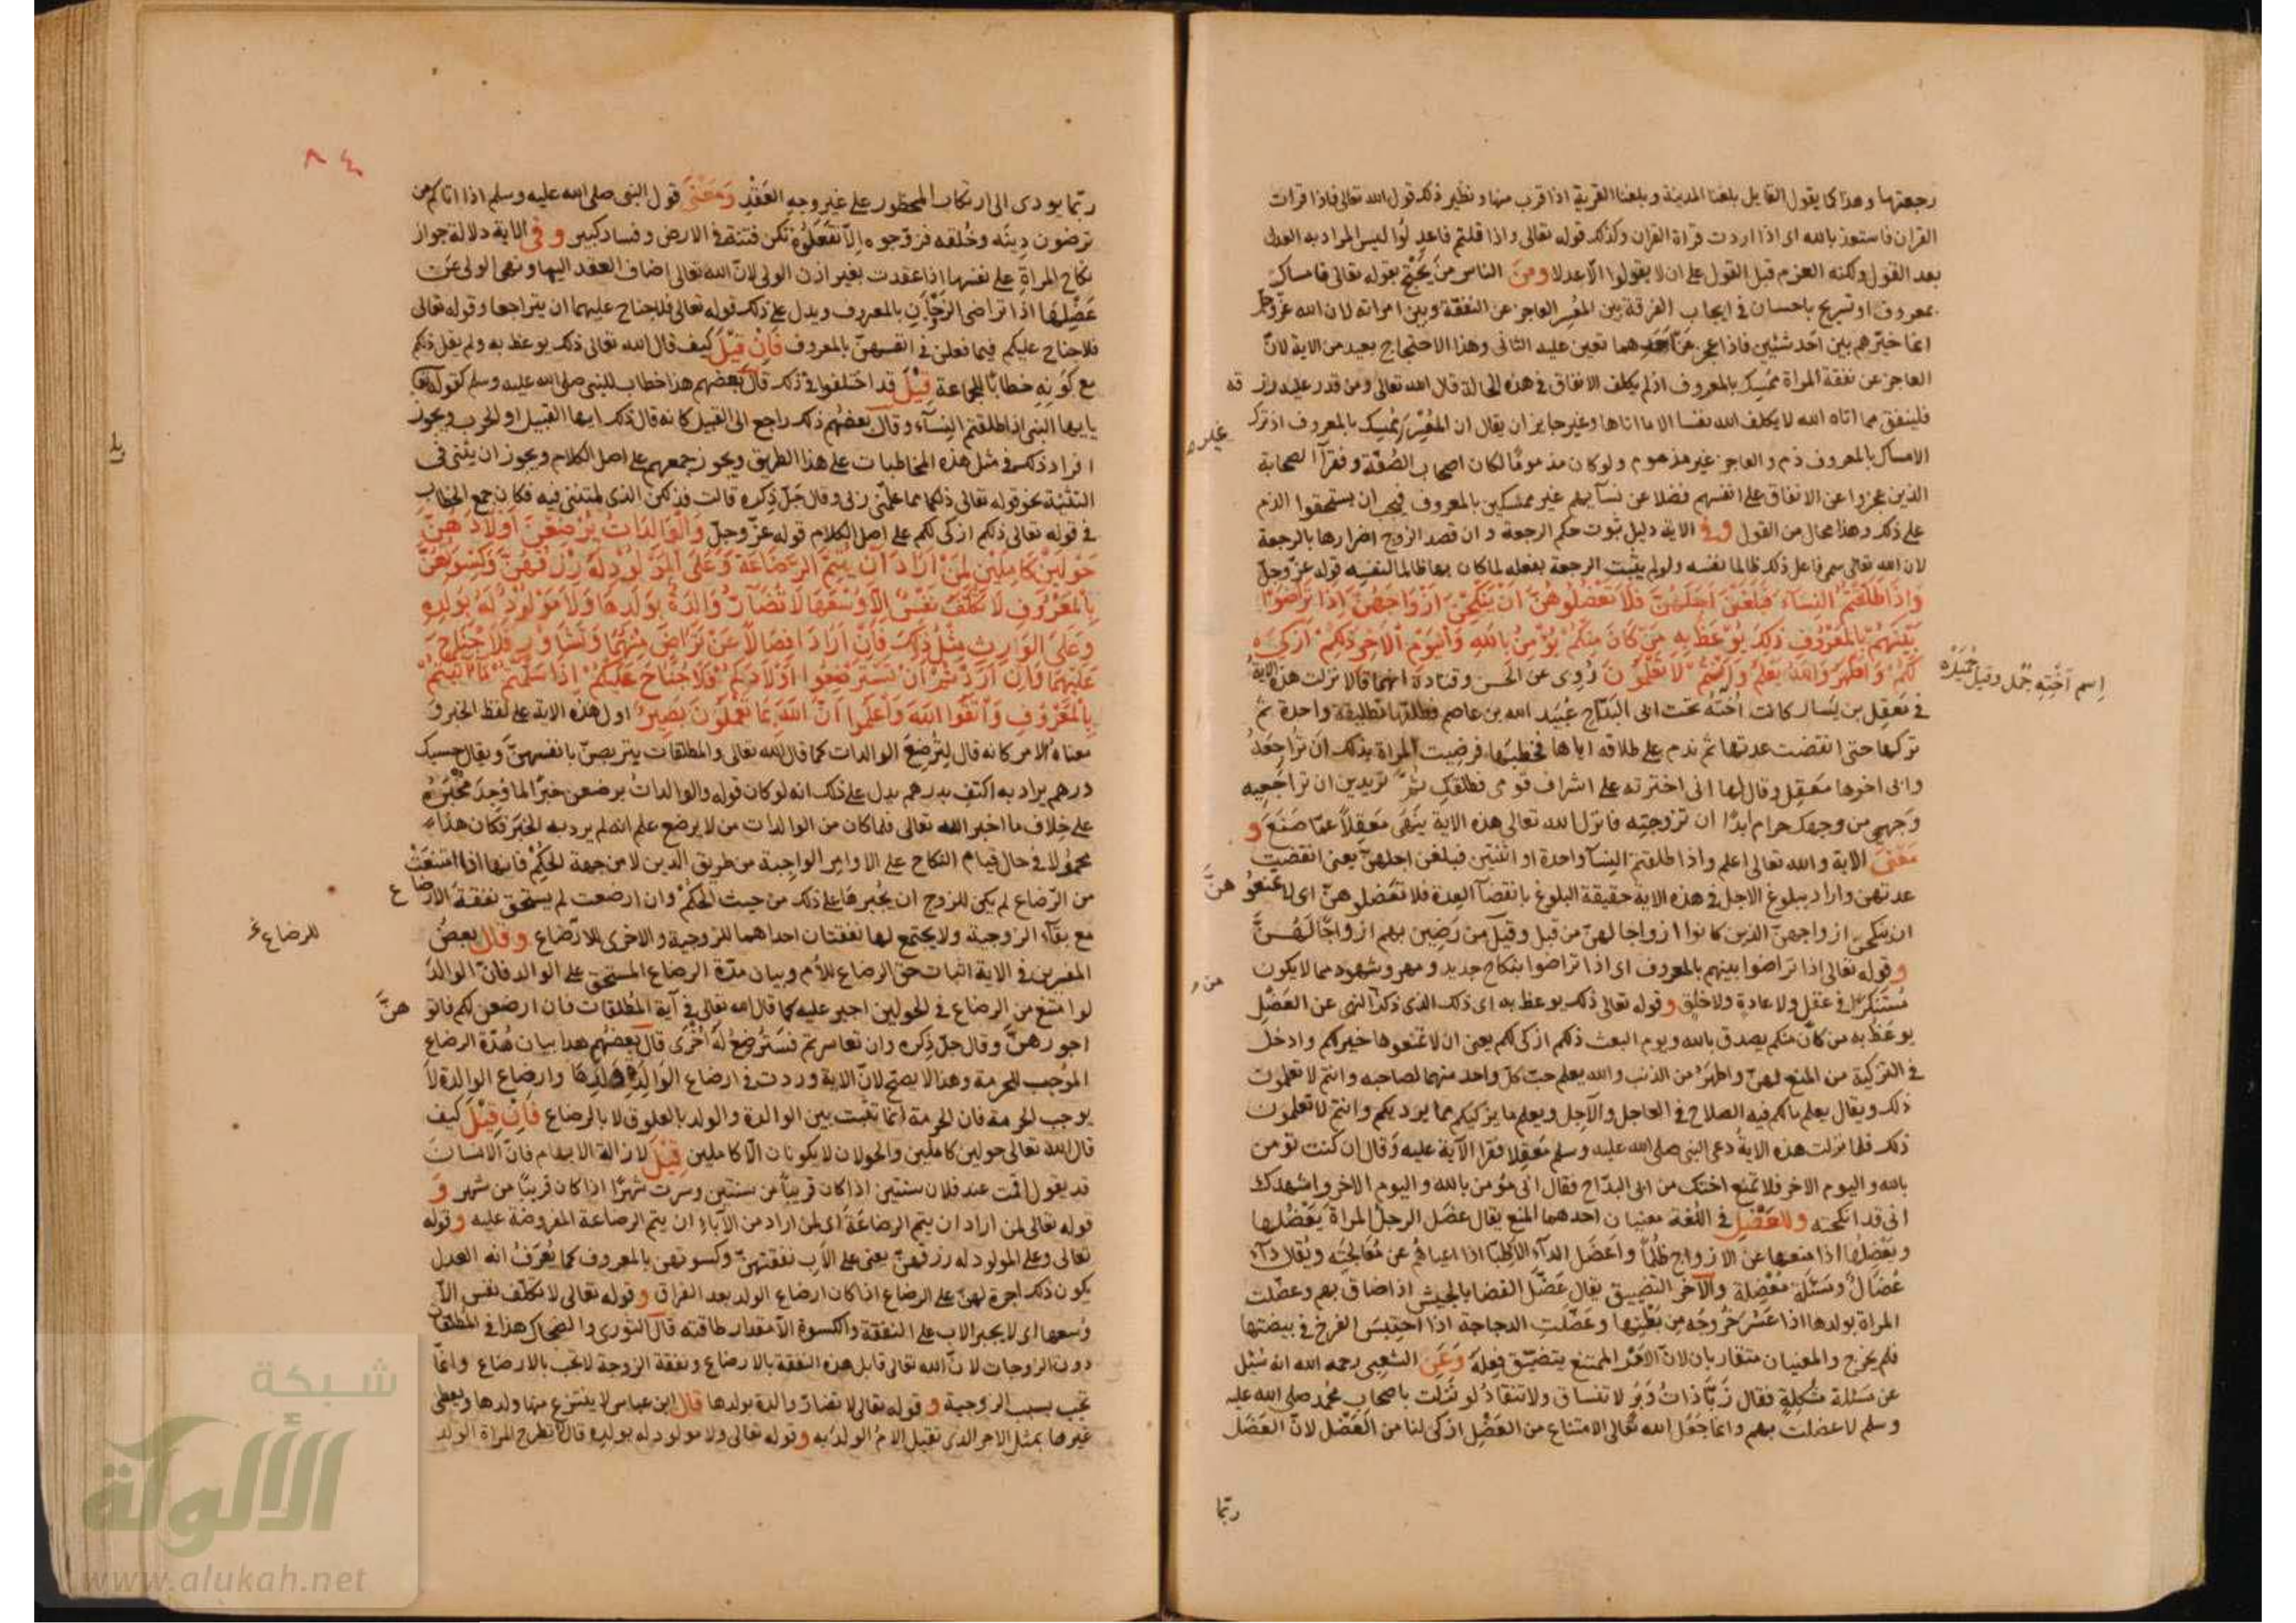 رجعتها وهذا كما يقول القايل بلغنا المدينة وبلغنا القرية اذا قرب منها ونظير ذلك قول الله تعالى فاذا قرات
القران فاستعذ بالله اى اذا اردت قراة القران وكذلك قوله تعالى واذا قلتم فاعدلوا ليس المراد به العدل
بعد القول ولكنه العزم قبل القول على ان لا يقولوا الا عدلا ومن الناس من يحتج بقوله تعالى فامساك
بمعروف او تسريح باحسان فى ايجاب الفرقة بين المعسر العاجز عن النفقة وبين امراته لان الله عز وجل
انما خيرهم بين احد شئين فاذا عجز عن احدهما تعين عليه الثانى وهذا الاحتجاج بعيد من الاية لان
العاجز عن نفقة المراة ممسك بالمعروف اذ لم يكلف الانفاق فى هذه الحالة قال الله تعالى ومن قدر عليه رزقه
فلينفق مما اتاه الله لا يكلف الله نفسا الا ما اتاها وغير جايز ان يقال ان المعسر غير ممسك بالمعروف اذ ترك
الامساك بالمعروف ذم والعاجز غير مذموم ولو كان مذموما لكان اصحاب الصفة وفقرآ الصحابة
الذين عجزوا عن الانفاق على انفسهم فضلا عن نسآيهم غير ممسكين بالمعروف فيجب ان يستحقوا الذم
على ذلك وهذا محال من القول وفى الاية دليل ثبوت حكم الرجعة وان قصد الزوج اضرارها بالرجعة
لان الله تعالى سمى فاعل ذلك ظالما نفسه ولو لم يثبت الرجعة بفعله لما كان بها ظالما لنفسه قوله عز وجل
وَاِذَا طَلَّقْتُمُ النِّسَاءَ فَبَلَغْنَ اَجَلَهُنَّ فَلَا تَعْضُلُوهُنَّ اَنْ يَنْكِحْنَ اَزْوَاجَهُنَّ اِذَا تَرَاضَوْا
بَيْنَهُمْ بِالْمَعْرُوفِ ذٰلِكَ يُوعَظُ بِهِ مَنْ كَانَ مِنْكُمْ يُؤْمِنُ بِاللهِ وَالْيَوْمِ الْاٰخِرِ ذٰلِكُمْ اَزْكٰى
لَكُمْ وَاَطْهَرُ وَاللهُ يَعْلَمُ وَاَنْتُمْ لَا تَعْلَمُونَ رُوِى عن الحسن وقتادة انهما قالا نزلت هذه الاية
اسم اخته جُمْل وقيل جُمَيْلَة
فى معقل بن يسار كانت اخته تحت ابى البداح عبيد الله بن عاصم فطلقها تطليقة واحدة ثم
تركها حتى انقضت عدتها ثم ندم على طلاقه اياها فخطبها فرضيت المراة بذلك ان تراجعه
وابى اخوها معقل وقال لها انى اخترته على اشراف قومى فطلقك ثم تريدين ان تراجعيه
وجهى من وجهك حرام ابدًا ان تزوجتِه فانزل الله تعالى هذه الاية ينهى معقلًا عما صنع و
معنى الاية والله تعالى اعلم واذا طلقتم النسآ واحدة او اثنتين فبلغن اجلهن يعنى انقضت
عدتهن واراد ببلوغ الاجل فى هذه الاية حقيقة البلوغ بانقضآ العدة فلا تعضلوهن اى لا تمنعوهن
ان ينكحن ازواجهن الذين كانوا ازواجا لهن من قبل وقيل من رضين بهم ازواجًا لهن
وقوله تعالى اذا تراضوا بينهم بالمعروف اى اذا تراضوا بنكاح جديد ومهر وشهود مما لا يكون
مستنكرًا فى عقل ولا عادة ولا خلق وقوله تعالى ذلك يوعظ به اى ذلك الذى ذكر من النهى عن العضل
يوعظ به من كان منكم يصدق بالله ويوم البعث ذلكم ازكى لكم يعنى ان لا تمنعوها خير لكم وادخل
فى التزكية من المنع لهن واطهر من الذنب والله يعلم حب كل واحد منهما لصاحبه وانتم لا تعلمون
ذلك ويقال يعلم ما لكم فيه الصلاح فى العاجل والآجل ويعلم ما يزكيكم مما يرديكم وانتم لا تعلمون
ذلك فلما نزلت هذه الاية دعى النبى صلى الله عليه وسلم معقلا فقرا الآية عليه وقال ان كنت تؤمن
بالله واليوم الاخر فلا تمنع اختك من ابى البداح فقال انى مؤمن بالله واليوم الاخر واشهدك
انى قد انكحته وللعضل فى اللغة معنيان احدهما المنع يقال عضل الرجل المراة يعضُلها
ويعضِلها اذا منعها عن الازواج ظلمًا واعضل الدآء الاطبآ اذا اعياهم عن معالجته ويقال دآء
عضال ومسئلة معضلة والآخر التضييق يقال عضّل الفضا بالجيش اذا ضاق بهم وعضلت
المراة بولدها اذا عسر خروجه من بطنها وعضلت الدجاجة اذا احتبس الفرخ فى بيضتها
فلم يخرج والمعنيان متقاربان لان الامر الممتنع يتضيق فعله وعن الشعبى رحمه الله انه سئل
عن مسئلة مشكلة فقال زبآ ذات وبر لا تنساق ولا تنقاد لو نزلت باصحاب محمد صلى الله عليه
وسلم لاعضلت بهم وانما جعل الله تعالى الامتناع من العضل ازكى لنا من العضل لان العضل
ربما
٨٤
ربما يودى الى ارتكاب المحظور على غير وجه العقد ومعنى قول النبى صلى الله عليه وسلم اذا اتاكم من
ترضون دينه وخلقه فزوجوه الا تفعلوه تكن فتنة فى الارض وفساد كبير وفى الاية دلالة جواز
نكاح المراة على نفسها اذا عقدت بغير اذن الولى لان الله تعالى اضاف العقد اليها ونهى الولى عن
عضلها اذا تراضى الزوجان بالمعروف ويدل على ذلك قوله تعالى فلا جناح عليهما ان يتراجعا وقوله تعالى
فلا جناح عليكم فيما فعلن فى انفسهن بالمعروف فان قيل كيف قال الله تعالى ذلك يوعظ به ولم يقل ذلكم
مع كونه خطابًا للجماعة قيل قد اختلفوا فى ذلك قال بعضهم هذا خطاب للنبى صلى الله عليه وسلم كقوله تعا
يايها النبى اذا طلقتم النسآء وقال بعضهم ذلك راجع الى القبيل كانه قال ذلك ايها القبيل او الحزب ويجوز
افراد ذلك فى مثل هذه المخاطبات على هذا الطريق ويجوز جمعهم على اصل الكلام ويجوز ان يثنى فى
التثنية نحو قوله تعالى ذلكما مما علمنى ربى وقال جل ذكره قالت فذلكن الذى لمتننى فيه فكان جمع الخطاب
فى قوله تعالى ذلكم ازكى لكم على اصل الكلام قوله عز وجل وَالْوَالِدَاتُ يُرْضِعْنَ اَوْلَادَهُنَّ
حَوْلَيْنِ كَامِلَيْنِ لِمَنْ اَرَادَ اَنْ يُتِمَّ الرَّضَاعَةَ وَعَلَى الْمَوْلُودِ لَهُ رِزْقُهُنَّ وَكِسْوَتُهُنَّ
بِالْمَعْرُوفِ لَا تُكَلَّفُ نَفْسٌ اِلَّا وُسْعَهَا لَا تُضَارَّ وَالِدَةٌ بِوَلَدِهَا وَلَا مَوْلُودٌ لَهُ بِوَلَدِهِ
وَعَلَى الْوَارِثِ مِثْلُ ذٰلِكَ فَاِنْ اَرَادَا فِصَالًا عَنْ تَرَاضٍ مِنْهُمَا وَتَشَاوُرٍ فَلَا جُنَاحَ
عَلَيْهِمَا وَاِنْ اَرَدْتُمْ اَنْ تَسْتَرْضِعُوا اَوْلَادَكُمْ فَلَا جُنَاحَ عَلَيْكُمْ اِذَا سَلَّمْتُمْ مَا اٰتَيْتُمْ
بِالْمَعْرُوفِ وَاتَّقُوا اللهَ وَاعْلَمُوا اَنَّ اللهَ بِمَا تَعْمَلُونَ بَصِيرٌ اول هذه الاية على لفظ الخبر و
معناه الامر كانه قال ليرضع الوالدات كما قال الله تعالى والمطلقات يتربصن بانفسهن ويقال حسبك
درهم يراد به اكتف بدرهم يدل على ذلك انه لو كان قوله والوالدات يرضعن خبرًا لما وجد مخبره
على خلاف ما اخبر الله تعالى فلما كان من الوالدات من لا يرضع علم انه لم يرد به الخبر فكان هذا
محمولا فى حال قيام النكاح على الاوامر الواجبة من طريق الدين لا من جهة الحكم فانها اذا امتنعت
من الرضاع لم يكن للزوج ان يجبرها على ذلك من حيث الحكم وان ارضعت لم يستحق نفقة الارضاع
مع بقآء الزوجية ولا يجتمع لها نفقتان احداهما للزوجية والاخرى للارضاع وقال بعض
للرضاع
المفسرين فى الاية اثبات حق الرضاع للام وبيان مدة الرضاع المستحق على الوالد فان الوالد
لو امتنع من الرضاع فى الحولين اجبر عليه كما قال الله تعالى فى آية المطلقات فان ارضعن لكم فاتوهن
اجورهن وقال جل ذكره وان تعاسرتم فسترضع له اخرى قال بعضهم هذا بيان مدة الرضاع
الموجب للحرمة وهذا لا يصح لان الاية وردت فى ارضاع الوالدة ولدها وارضاع الوالدة لا
يوجب الحرمة فان الحرمة انما تثبت بين الوالدة والولد بالعلوق لا بالرضاع فان قيل كيف
قال الله تعالى حولين كاملين والحولان لا يكونان الا كاملين قيل لازالة الابهام فان الانسان
قد يقول اقمت عند فلان سنتين اذا كان قريبًا من سنتين وسرت شهرًا اذا كان قريبًا من شهر و
قوله تعالى لمن اراد ان يتم الرضاعة اى لمن اراد من الآباء ان يتم الرضاعة المفروضة عليه وقوله
تعالى وعلى المولود له رزقهن يعنى على الاب نفقتهن وكسوتهن بالمعروف كما يعرف انه العدل
يكون ذلك اجرة لهن على الرضاع اذا كان ارضاع الولد بعد الفراق وقوله تعالى لا تكلف نفس الا
وسعها اى لا يجبر الاب على النفقة والكسوة الا مقدار طاقته قال الثورى والضحاك هذا فى المطلقات
دون الزوجات لان الله تعالى قابل هذه النفقة بالارضاع ونفقة الزوجة لا تجب بالارضاع وانما
تجب بسبب الزوجية وقوله تعالى لا تضار والدة بولدها قال ابن عباس لا ينتزع منها ولدها ويعطى
غيرها بمثل الاجر الذى تقبل الام الولد به وقوله تعالى ولا مولود له بولده قال لا تطرح المراة الولد
شبكة
الألوكة
www.alukah.net